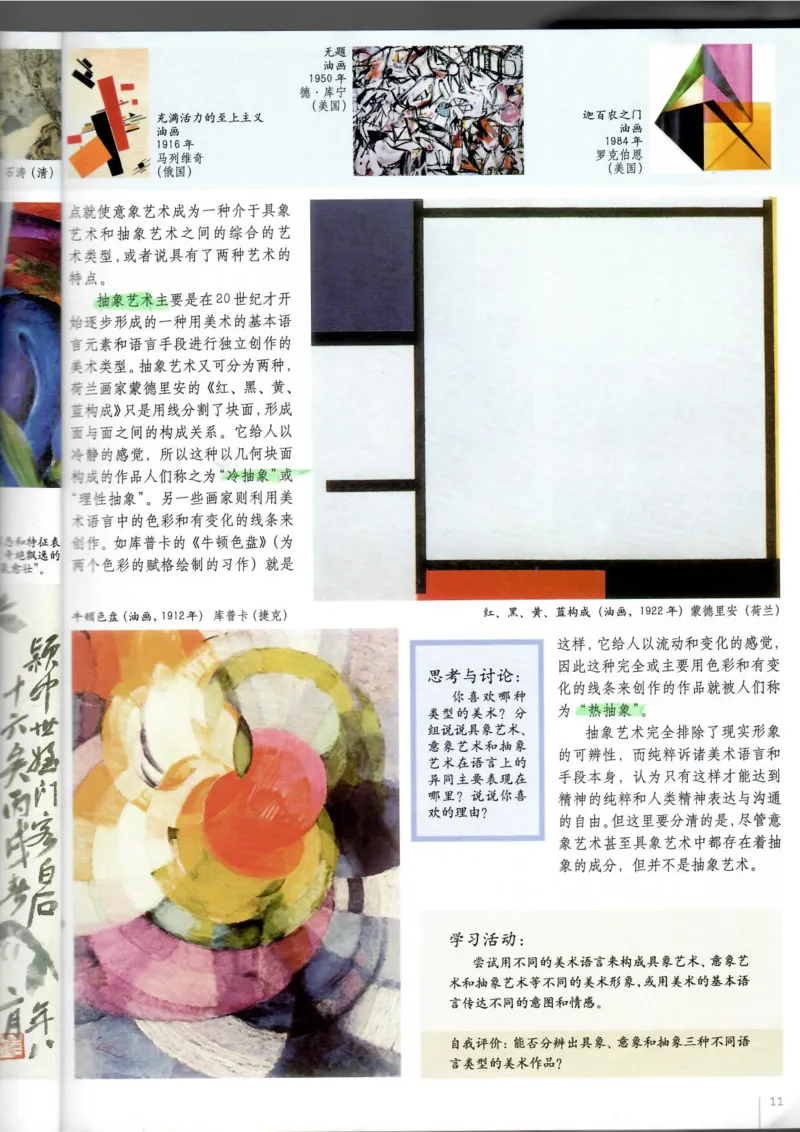 石涛（清）
充满活力的至上主义
油画
1916年
马列维奇
（俄国）
无题
油画
1950年
德·库宁
（美国）
迦百农之门
油画
1984年
罗克伯恩
（美国）
点就使意象艺术成为一种介于具象
艺术和抽象艺术之间的综合的艺
术类型，或者说具有了两种艺术的
特点。
抽象艺术主要是在20世纪才开
始逐步形成的一种用美术的基本语
言元素和语言手段进行独立创作的
美术类型。抽象艺术又可分为两种，
荷兰画家蒙德里安的《红、黑、黄、
蓝构成》只是用线分割了块面，形成
面与面之间的构成关系。它给人以
冷静的感觉，所以这种以几何块面
构成的作品人们称之为“冷抽象”或
“理性抽象”。另一些画家则利用美
术语言中的色彩和有变化的线条来
创作。如库普卡的《牛顿色盘》（为
两个色彩的赋格绘制的习作）就是
和特征表
飘逸的
红、黑、黄、蓝构成（油画，1922年）蒙德里安（荷兰）
牛顿色盘（油画，1912年） 库普卡（捷克）
思考与讨论：
你喜欢哪种
类型的美术？分
组说说具象艺术、
意象艺术和抽象
艺术在语言上的
异同主要表现在
哪里？说说你喜
欢的理由？
这样，它给人以流动和变化的感觉，
因此这种完全或主要用色彩和有变
化的线条来创作的作品就被人们称
为“热抽象”。
抽象艺术完全排除了现实形象
的可辨性，而纯粹诉诸美术语言和
手段本身，认为只有这样才能达到
精神的纯粹和人类精神表达与沟通
的自由。但这里要分清的是，尽管意
象艺术甚至具象艺术中都存在着抽
象的成分，但并不是抽象艺术。
学习活动：
尝试用不同的美术语言来构成具象艺术、意象艺
术和抽象艺术等不同的美术形象，或用美术的基本语
言传达不同的意图和情感。
自我评价：能否分辨出具象、意象和抽象三种不同语
言类型的美术作品？
11